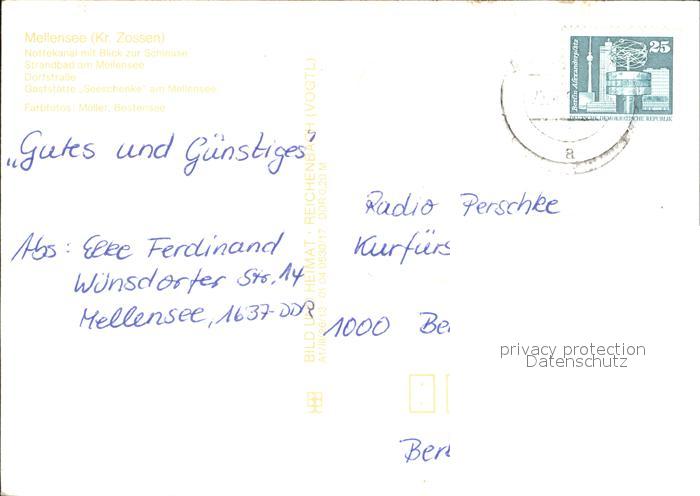 Mellensee (Kr. Zossen)
Nottekanal mit Blick zur Schleuse
Strandbad am Mellensee
Dorfstraße
Gaststätte „Seeschenke" am Mellensee
Farbfotos: Müller, Bestensee
25
Berlin, Alexanderplatz
DEUTSCHE DEMOKRATISCHE REPUBLIK
a
„Gutes und Günstiges"
Abs: Elke Ferdinand
Wünsdorfer Str. 14
Mellensee, 1637-DDR
BILD UND HEIMAT · REICHENBACH (VOGTL)
DDR 0,20 M
Radio Perschke
Kurfürs
1000 Be
privacy protection
Datenschutz
Berl